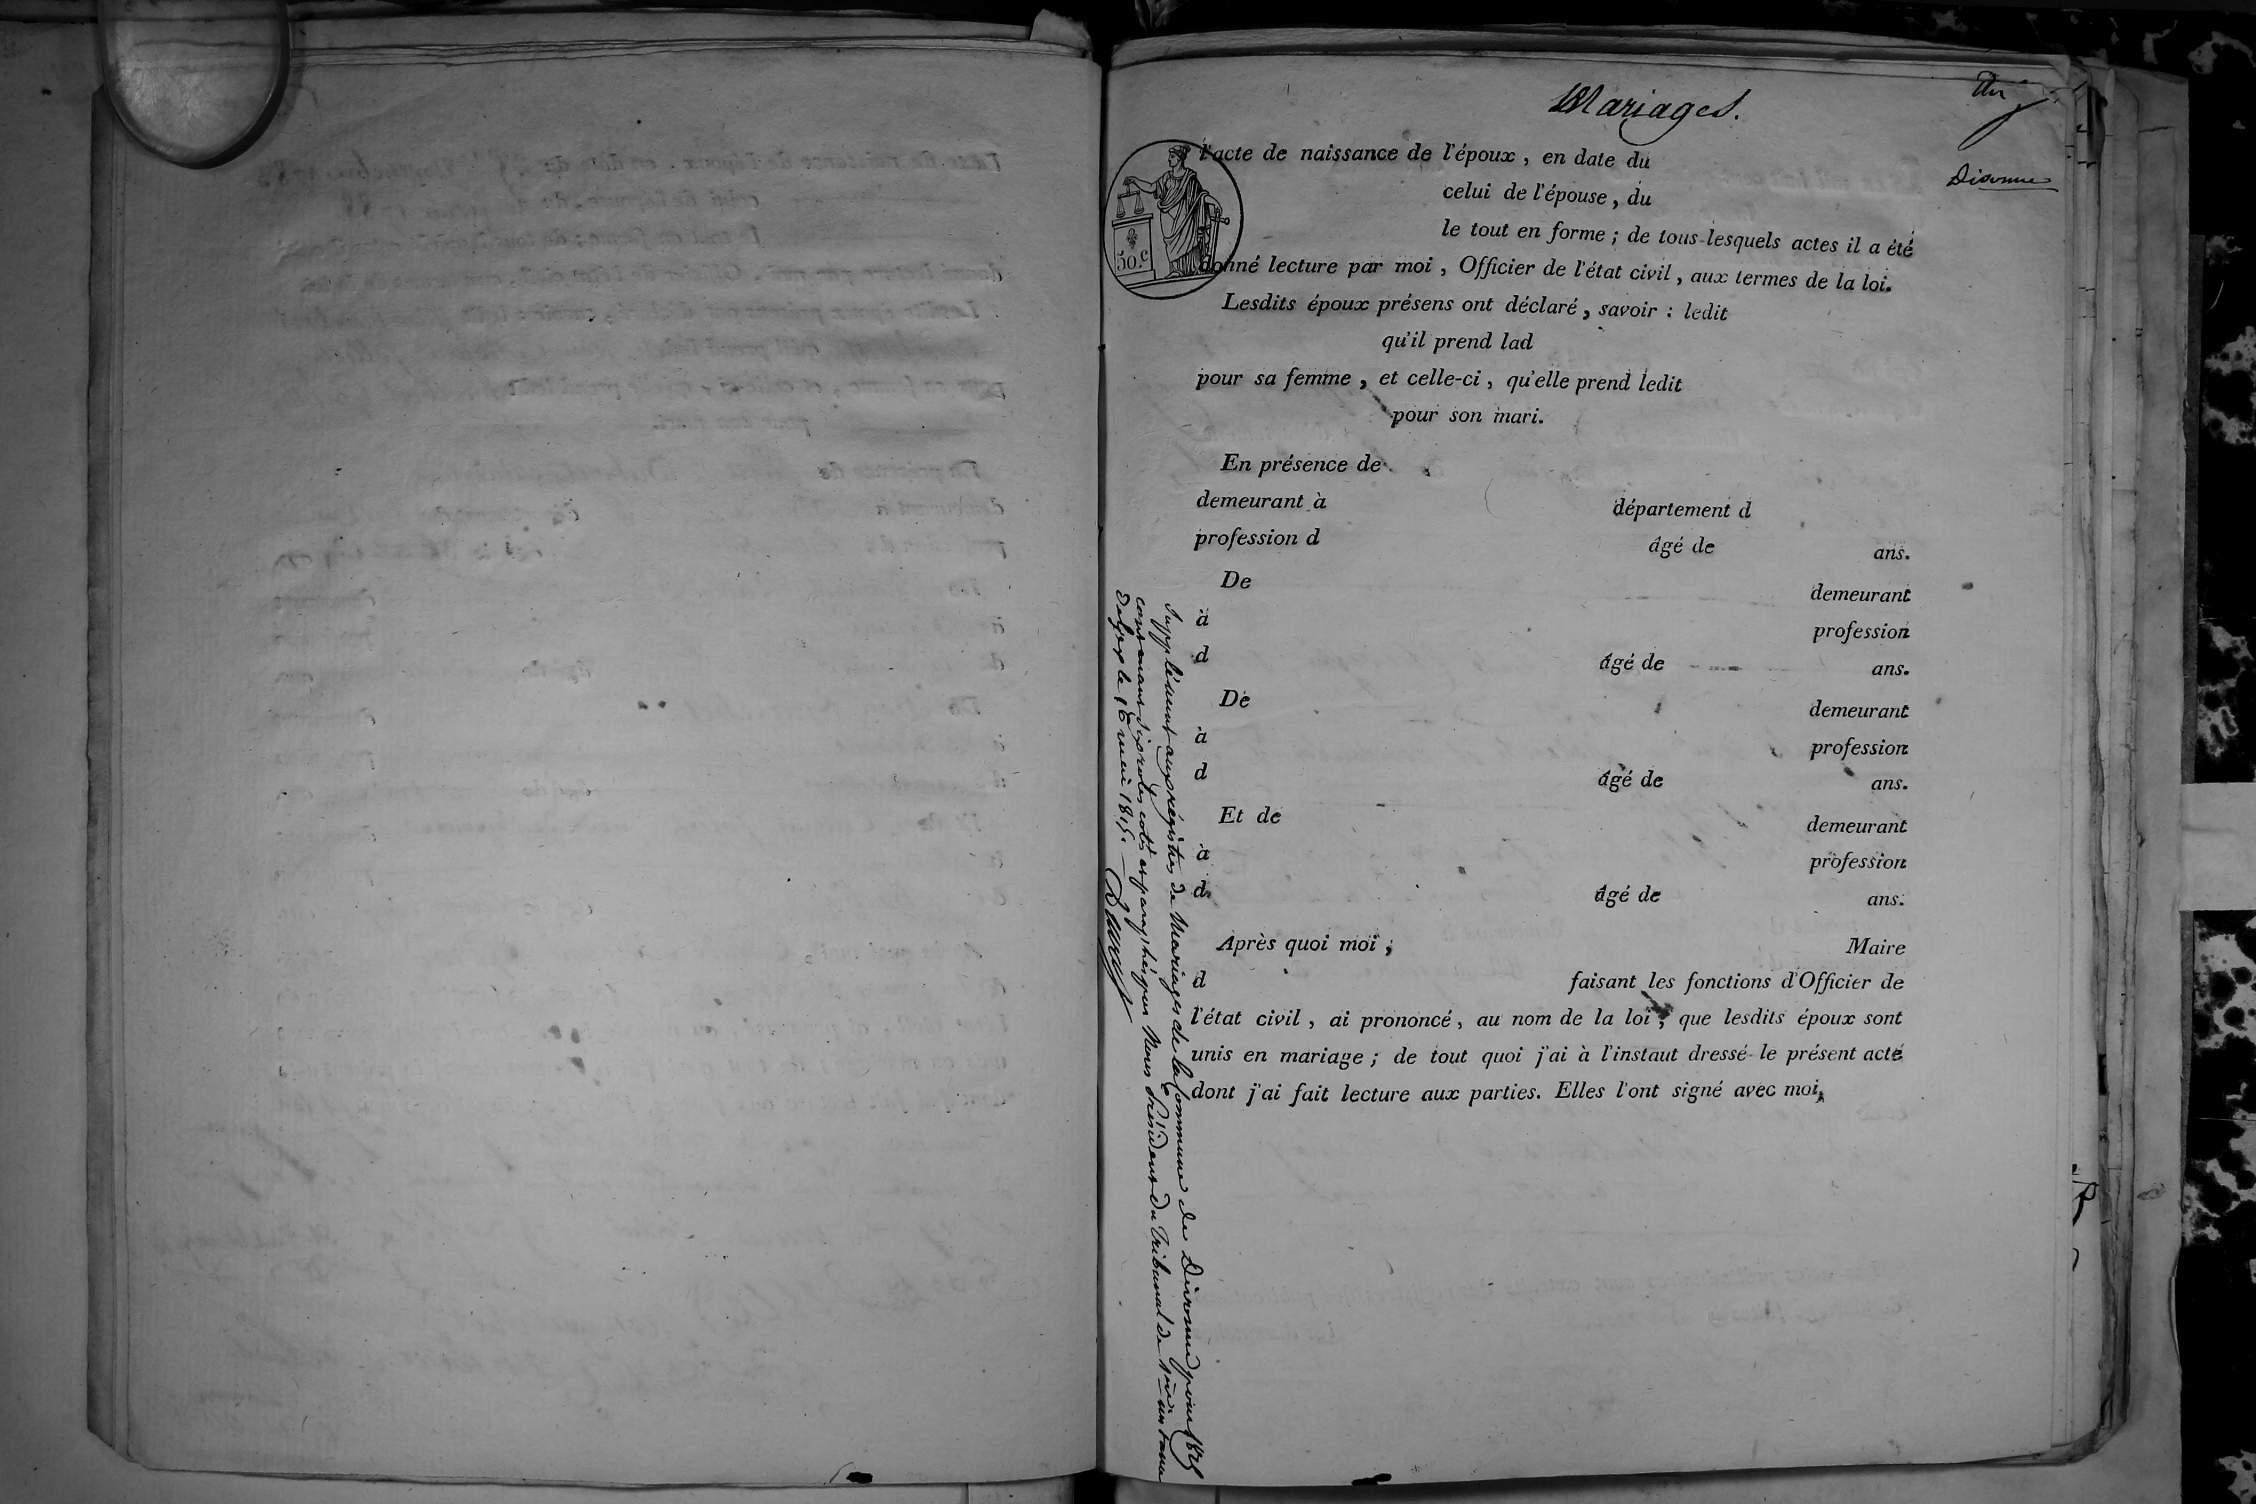 Mariages.
Divonne
50.c
l'acte de naissance de l'époux, en date du
celui de l'épouse, du
le tout en forme; de tous lesquels actes il a été
donné lecture par moi, Officier de l'état civil, aux termes de la loi.
Lesdits époux présens ont déclaré, savoir: ledit
qu'il prend lad
pour sa femme, et celle-ci, qu'elle prend ledit
pour son mari.
En présence de
demeurant à département d
profession d âgé de ans.
De demeurant
à profession
d âgé de ans.
De demeurant
à profession
d âgé de ans.
Et de demeurant
à profession
d âgé de ans.
Après quoi moi, Maire
d faisant les fonctions d'Officier de
l'état civil, ai prononcé, au nom de la loi, que lesdits époux sont
unis en mariage; de tout quoi j'ai à l'instaut dressé le présent acte
dont j'ai fait lecture aux parties. Elles l'ont signé avec moi,
Supplément aux régistres de Mariages de la Commune de Divonne pour 1815
contenant six rôles cotés et paraphés par Nous Président du Tribunal de 1ère
de Gex le 16 mai 1815.